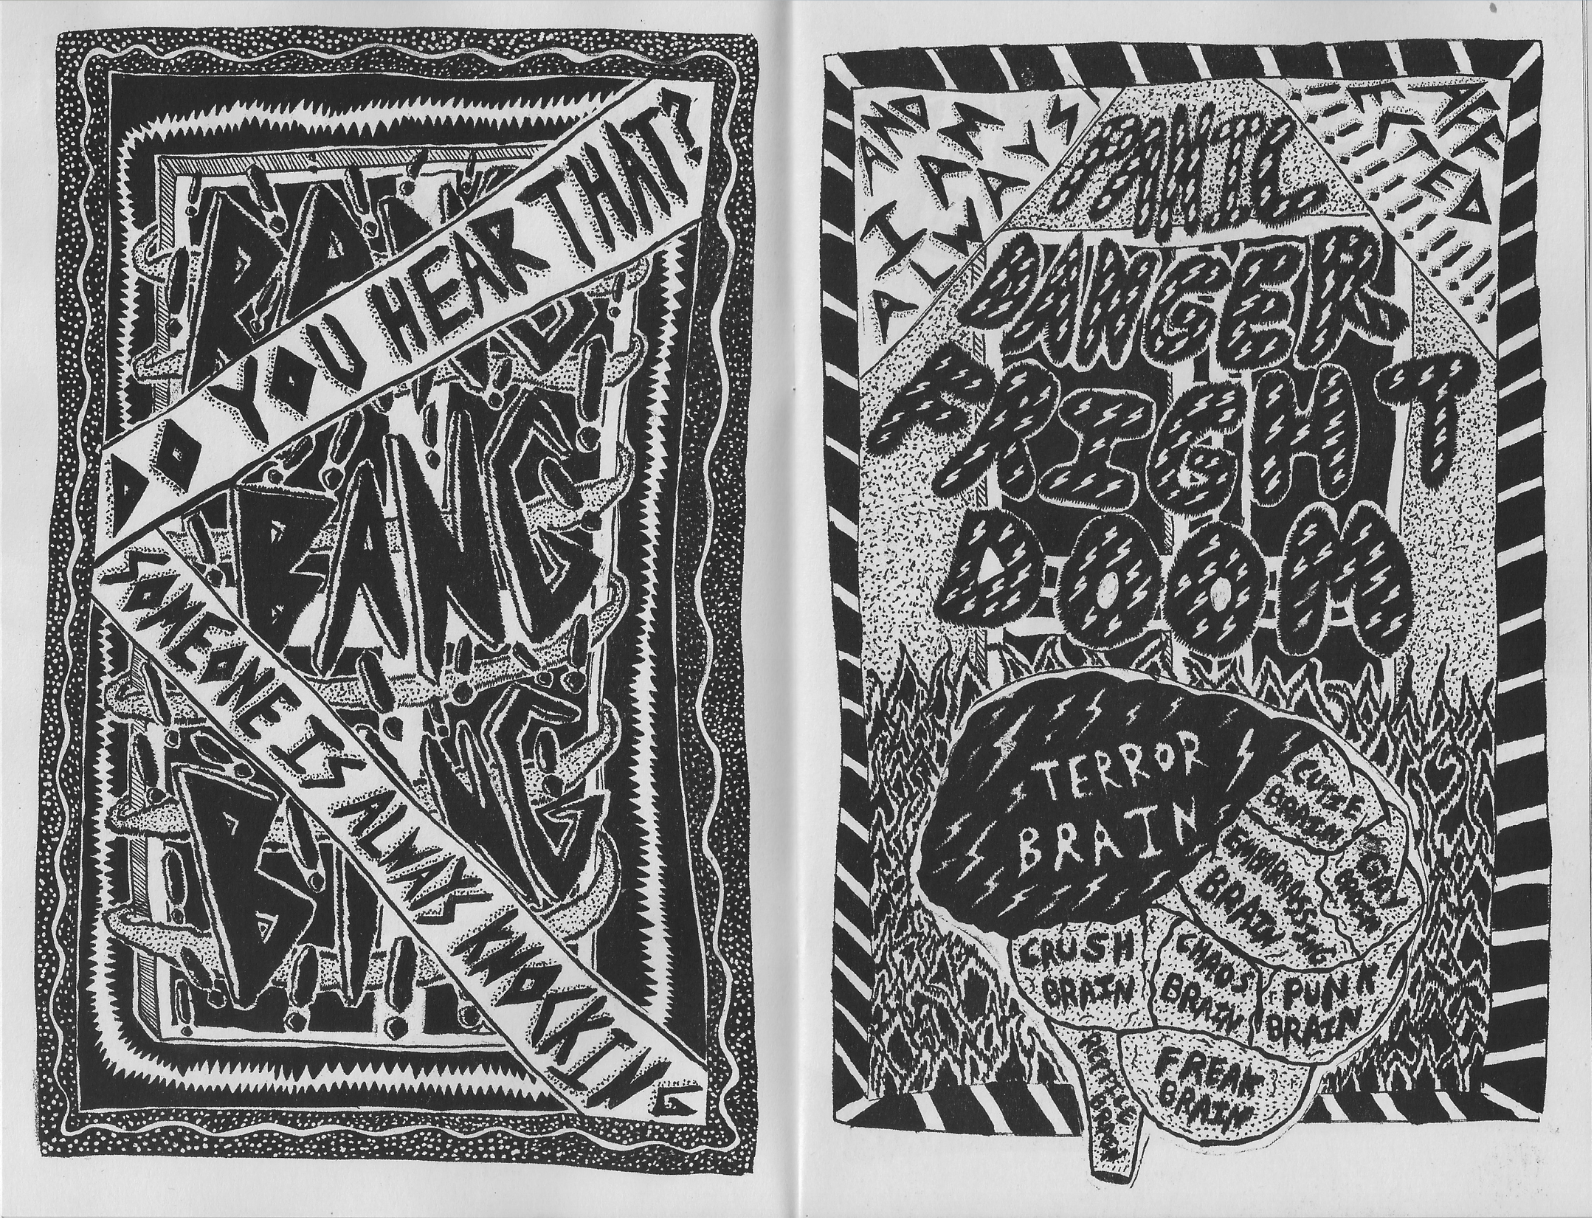 DO YOU HEAR THAT?
BANG
BANG
BANG
SOMEONE IS ALWAYS KNOCKING
AND
I AM
ALWAYS
AFFECTED
PANIC
DANGER
FRIGHT
DOOM
TERROR
BRAIN
CUTE
BRAIN
EMBARRASSING
BRAIN
BRAIN
CRUSH
BRAIN
CHAOS
BRAIN
PUNK
BRAIN
FREAK
BRAIN